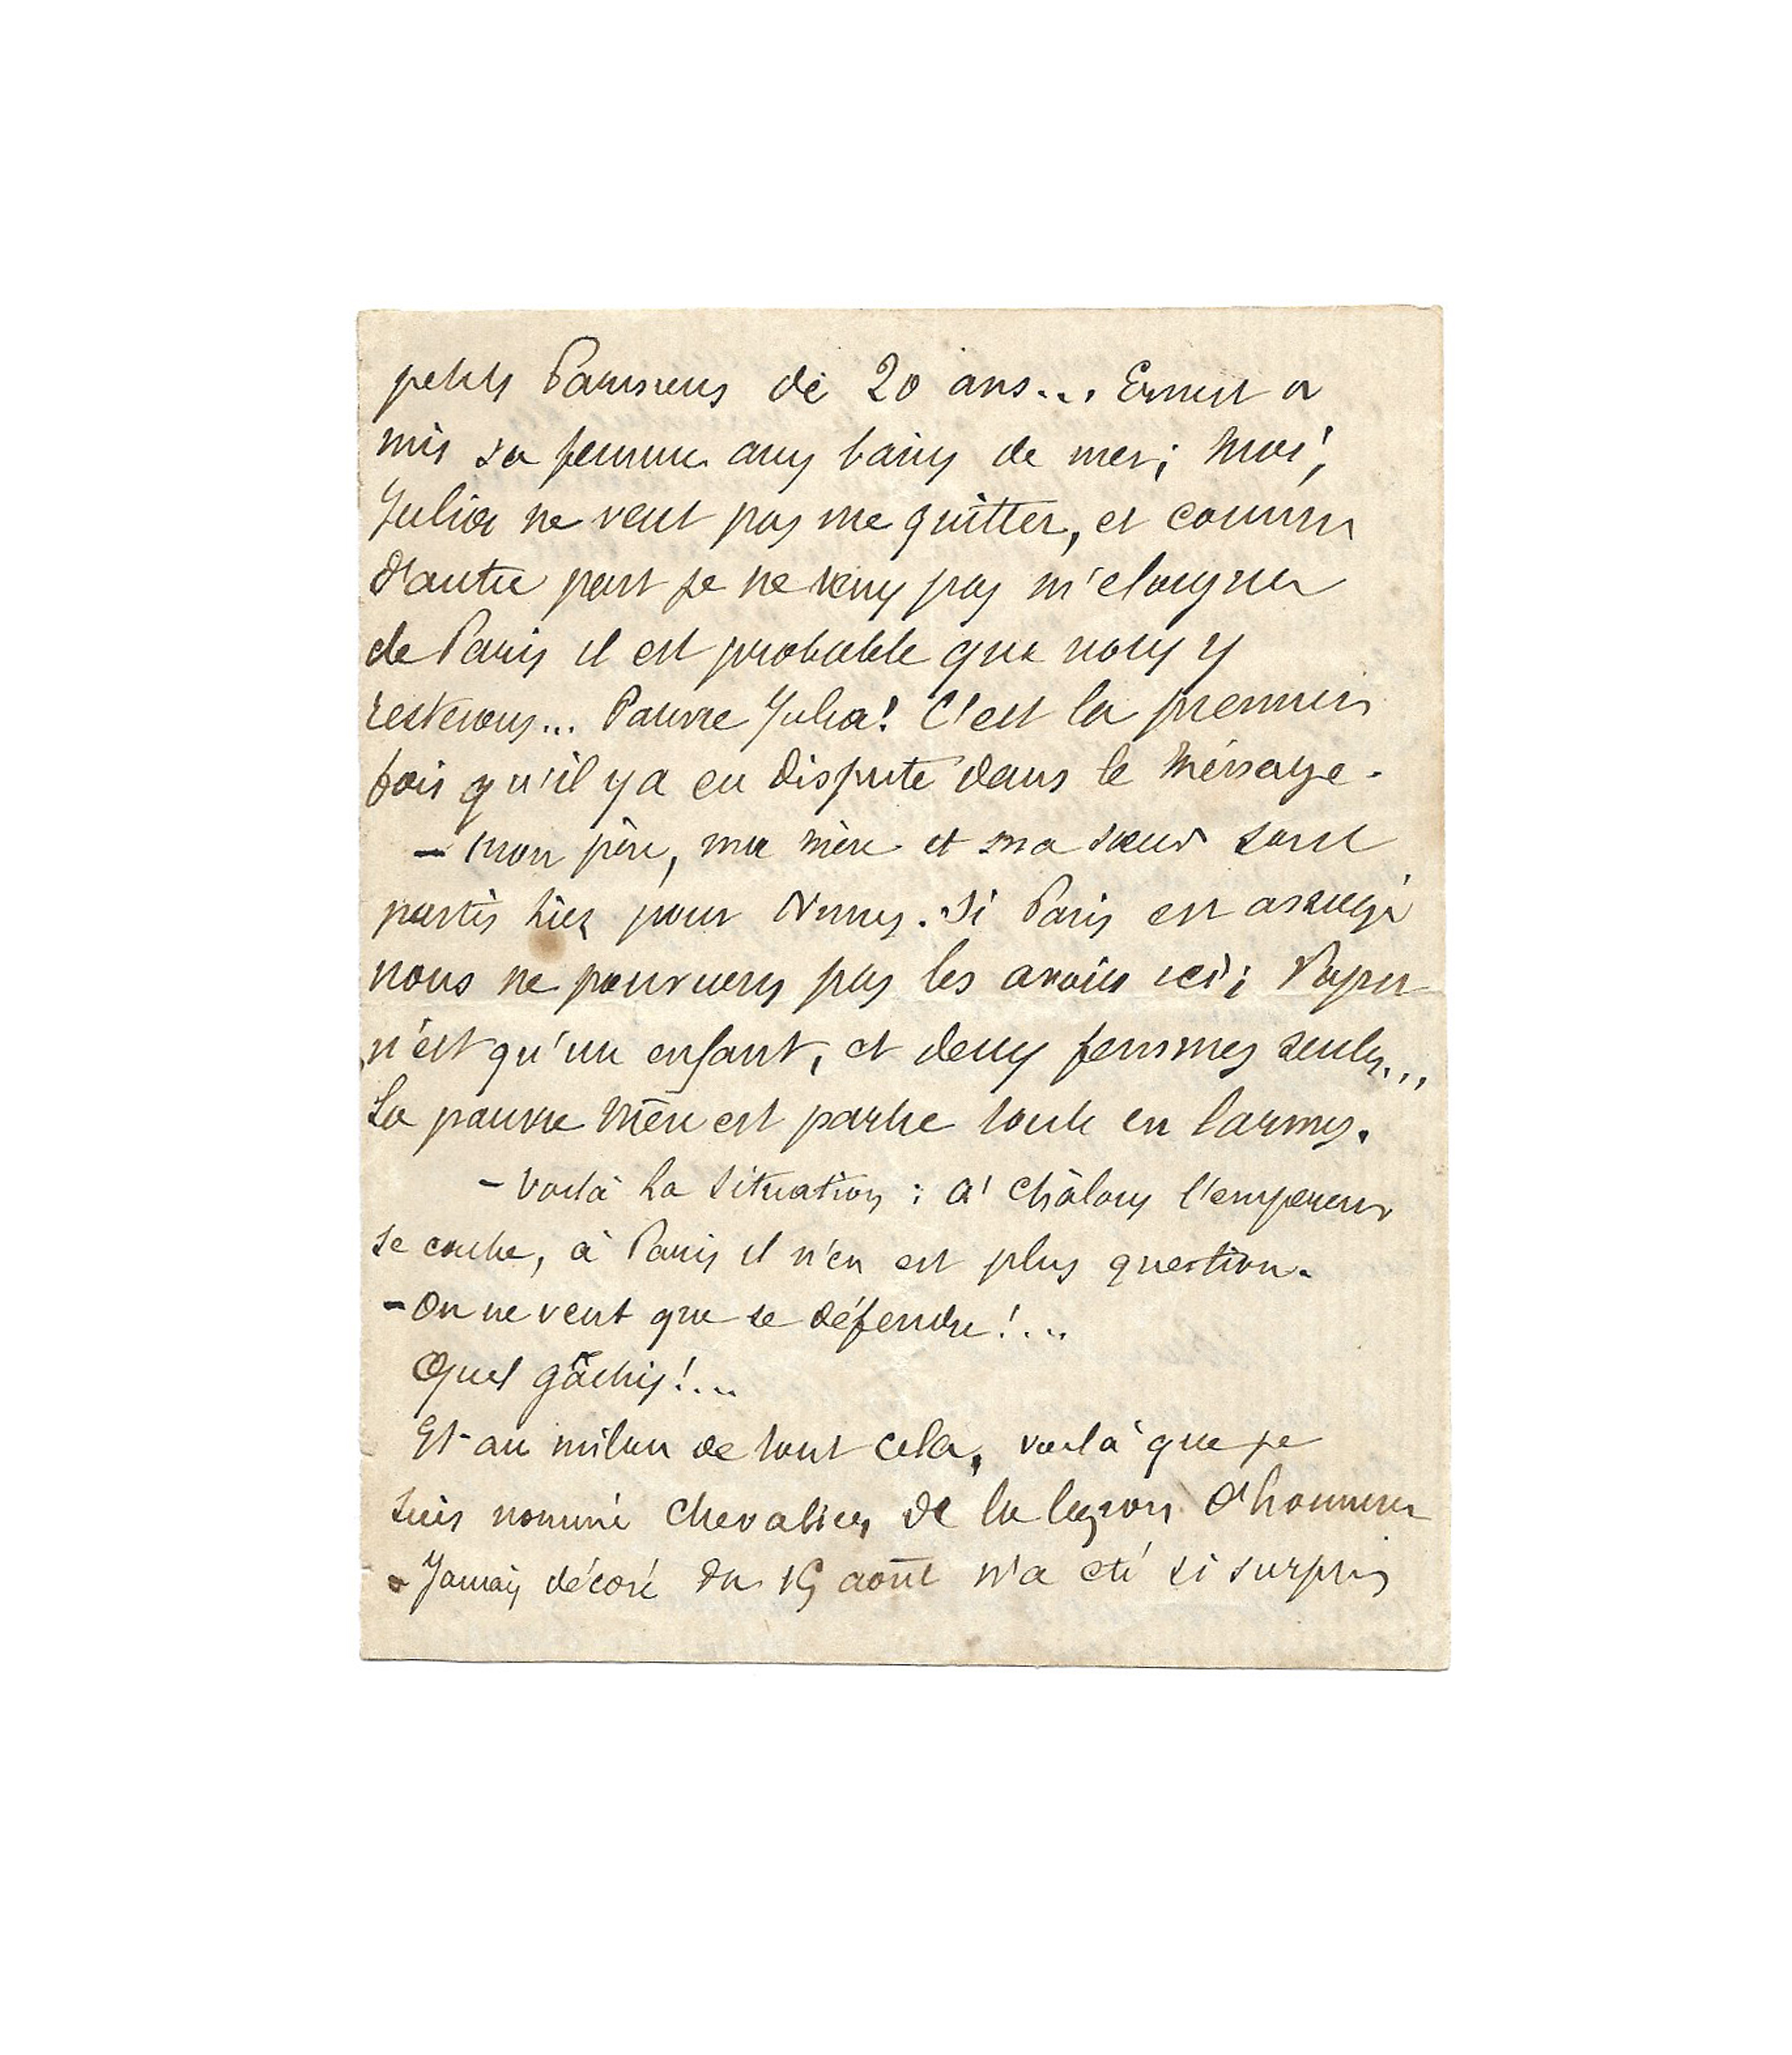 petits Parisiens de 20 ans... Ernest a
mis sa femme aux bains de mer; moi,
Julia ne veut pas me quitter, et comme
d'autre part je ne veux pas m'eloigner
de Paris il est probable que nous y
resterons... Pauvre Julia! C'est la premiere
fois qu'il y a eu dispute dans le ménage.
– Mon père, ma mère et ma sœur sont
partis hier pour Nimes. Si Paris est assiégé
nous ne pouvions pas les avoir ici; Papa
n'est qu'un enfant, et deux femmes seules...
La pauvre mère est partie toute en larmes.
– Voilà la situation : à Châlons l'empereur
se cache, à Paris il n'en est plus question.
– On ne veut que se défendre!...
Quel gâchis!...
Et au milieu de tout cela, voilà que je
suis nommé chevalier de la legion d'honneur
– Jamais décoré du 15 août n'a été si surpris